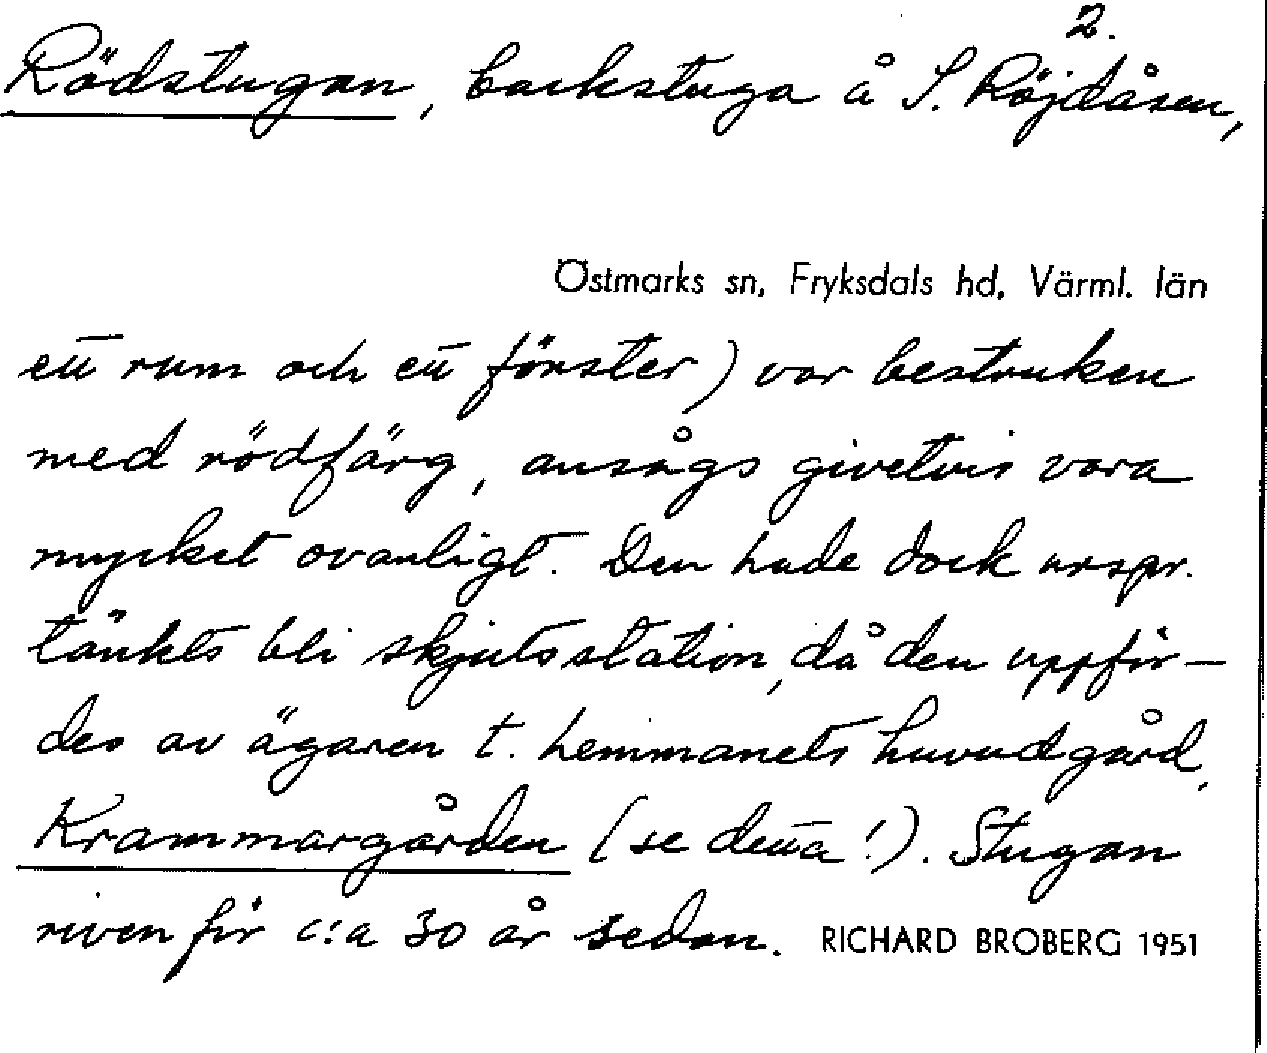 2.
Rödstugan, backstuga å S. Röjdåsen,
Östmarks sn, Fryksdals hd, Värml. län
ett rum och ett fönster) var bestruken
med rödfärg, ansågs givetvis vara
mycket ovanligt. Den hade dock urspr.
tänkts bli skjutsstation, då den uppför-
des av ägaren t. hemmanets huvudgård,
Krammargården (se detta!). Stugan
riven för c:a 30 år sedan. RICHARD BROBERG 1951